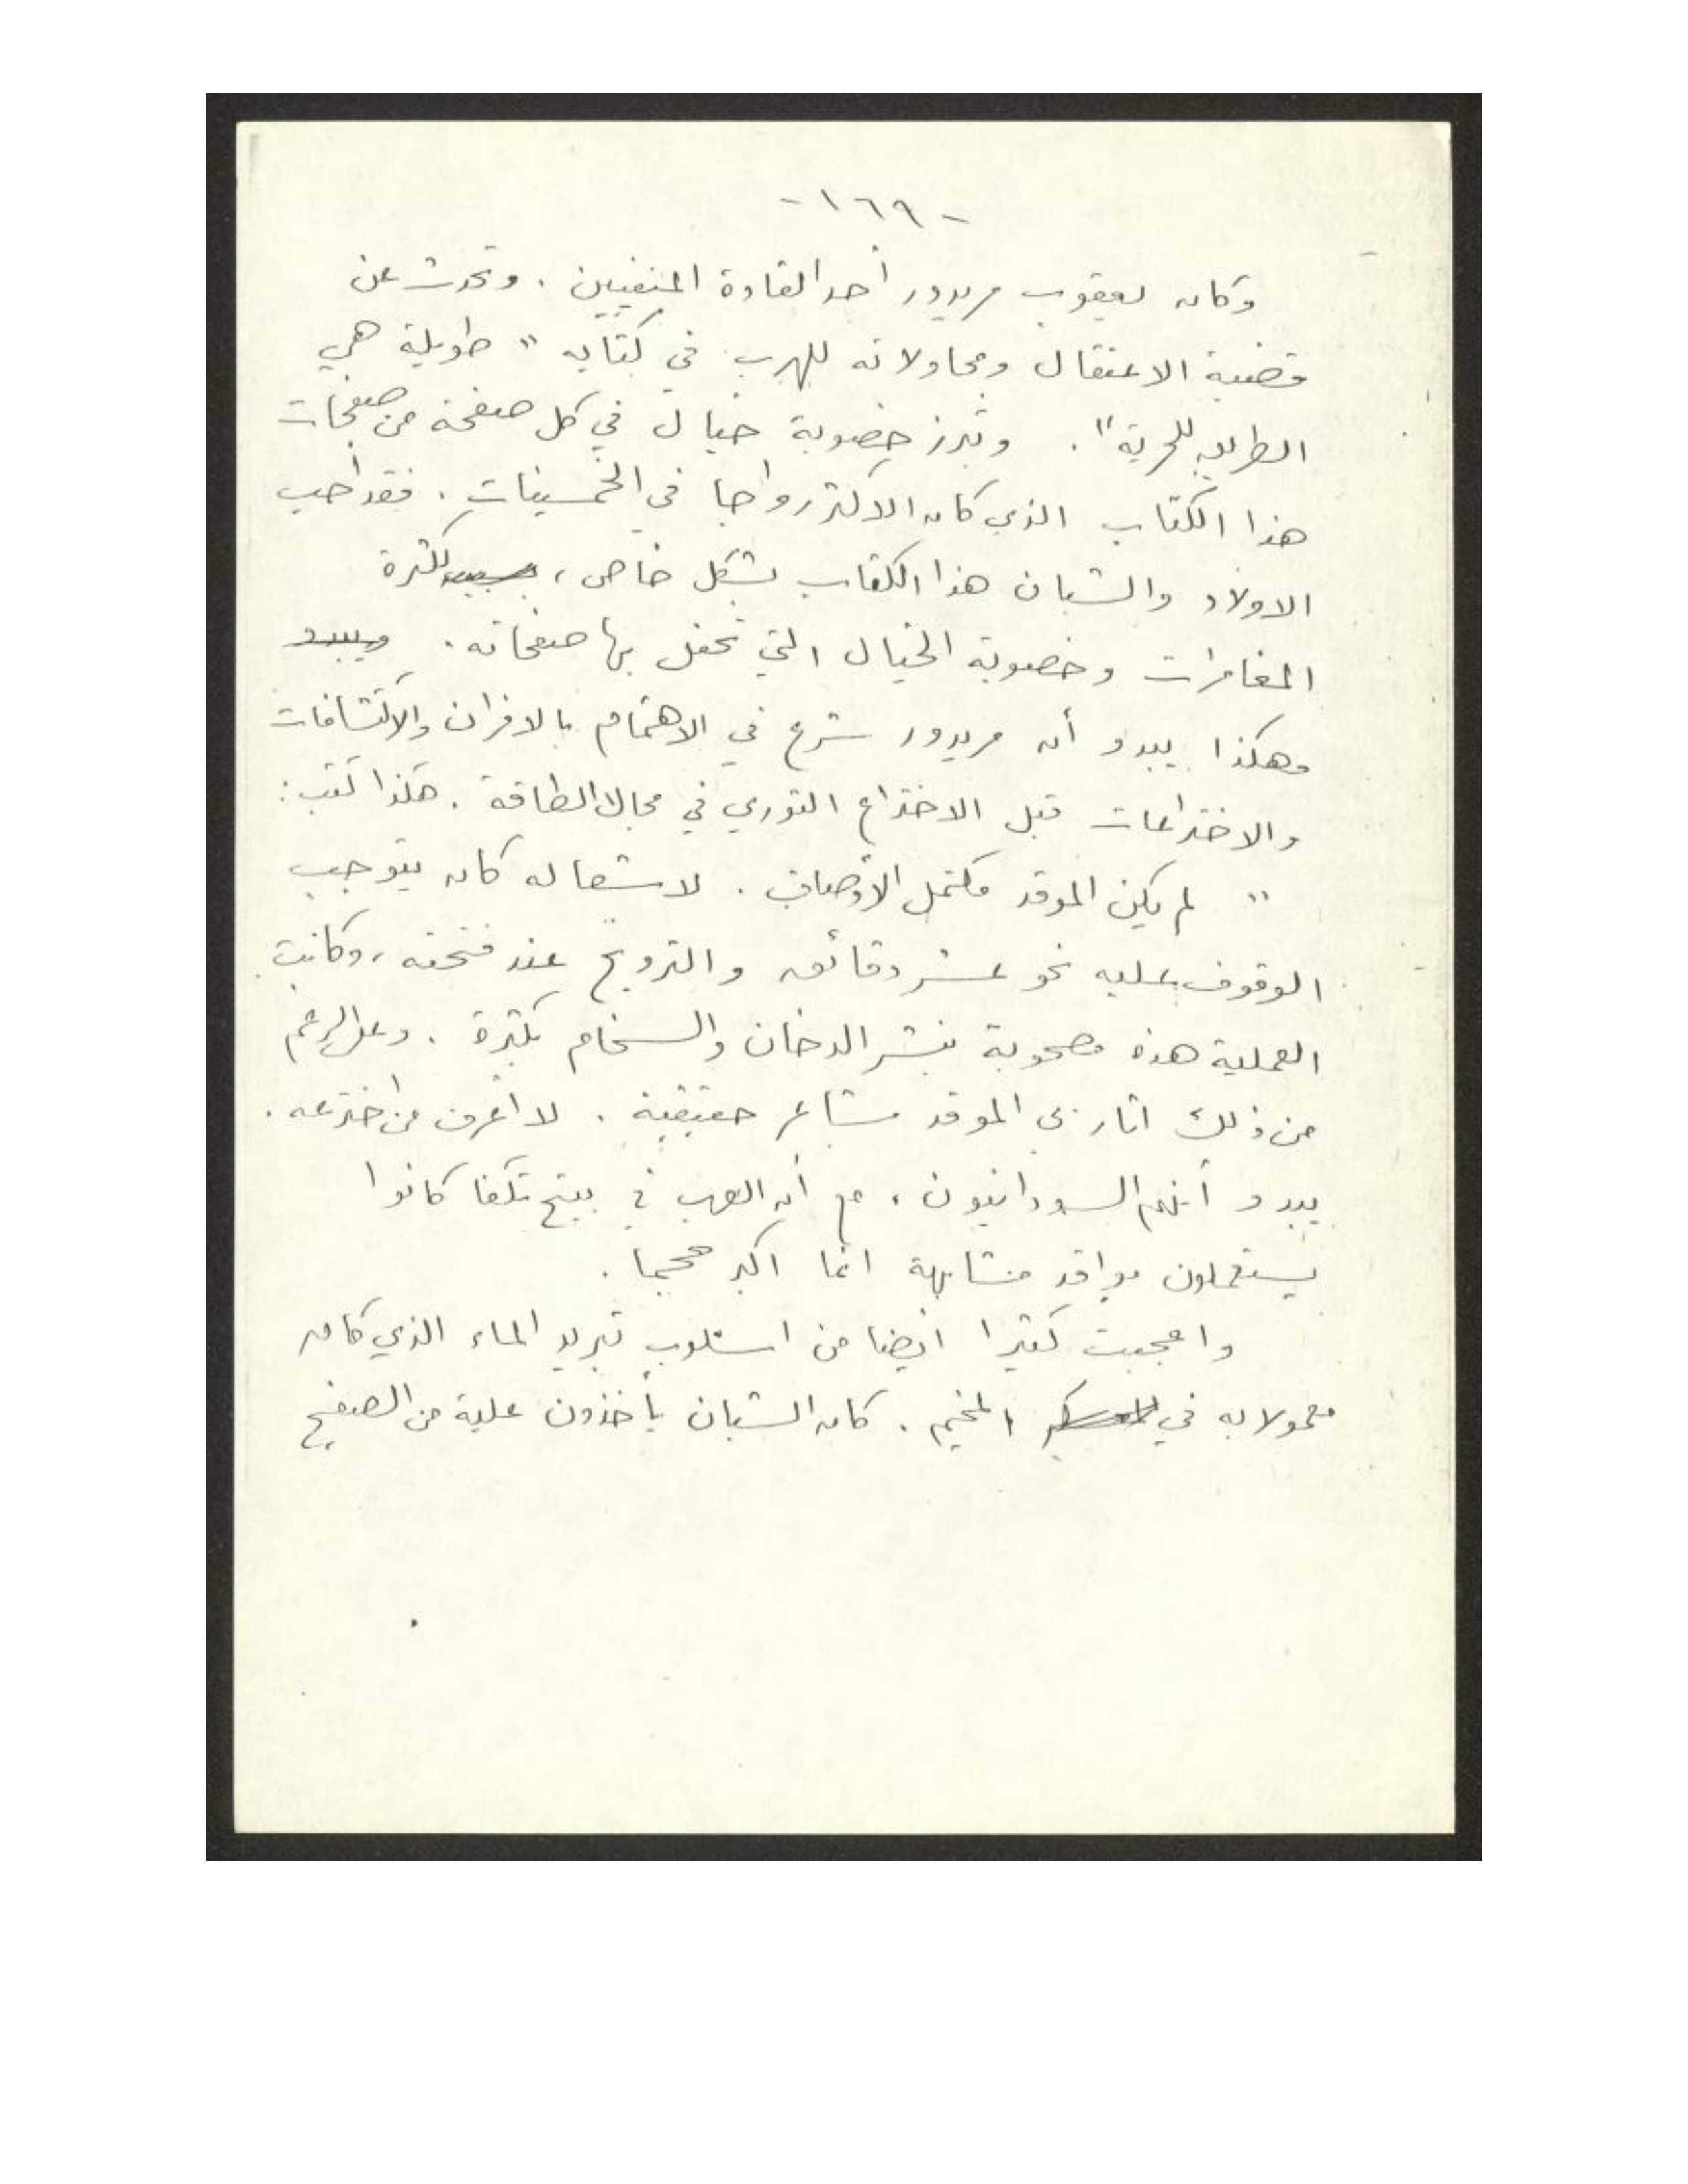 -١٦٩-
وكان يعقوب مريدور أحد القادة المنفيين. وتحدث عن
قضية الاعتقال ومحاولاته للهرب في كتابه " طويلة هي
الطريق للحرية". وتبرز خصوبة خيال في كل صفحة من صفحات
هذا الكتاب الذي كان الاكثر رواجا في الخمسينات. فقد أحب
الاولاد والشبان هذا الكتاب بشكل خاص، بسبب كثرة
المغامرات وخصوبة الخيال التي تحفل بها صفحاته. ويبدو
وهكذا يبدو أن مريدور شرع في الاهتمام بالافران والاكتشافات
والاختراعات قبل الاختراع الثوري في مجال الطاقة. هكذا كتب:
" لم يكن الموقد مكتمل الأوصاف. لاشعاله كان يتوجب
الوقوف عليه نحو عشر دقائق والترويح عند فتحته، وكانت
العملية هذه مصحوبة بنشر الدخان والسخام بكثرة. وعلى الرغم
من ذلك اثار بي الموقد مشاعر حقيقية. لا أعرف من اخترعه.
يبدو أنهم السودانيون، مع أن العرب في بيتح تكفا كانوا
يستعملون مواقد مشابهة انما اكبر حجما.
واعجبت كثيرا ايضا من اسلوب تبريد الماء الذي كان
معمولا به في المعسكر المخيم. كان الشبان يأخذون علبة من الصفيح